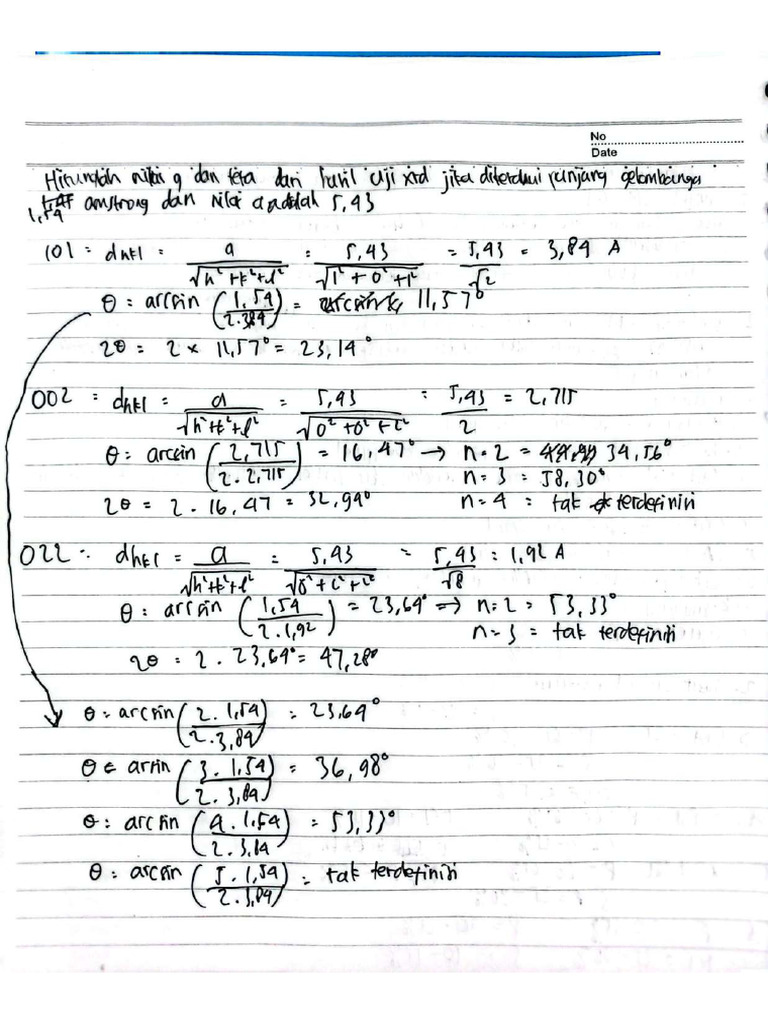 No
Date
Hitunglah nilai q dan teta dari hasil uji xrd jika diketahui panjang gelombangnya
1,54 amstrong dan nilai a adalah 5,43
101 : dhkl = a / √h²+k²+l² = 5,43 / √1²+0²+1² = 5,43 / √2 = 3,84 A
θ = arcsin (1,54 / 2.3,84) = 11,57°
2θ = 2 × 11,57° = 23,14°
002 : dhkl = a / √h²+k²+l² = 5,43 / √0²+0²+2² = 5,43 / 2 = 2,715
θ = arcsin (2,715 / 2.2,715) = 16,47° → n=2 = 34,56°
n=3 = 58,30°
2θ = 2 . 16,47 = 32,94° n=4 = tak terdefinisi
022 : dhkl = a / √h²+k²+l² = 5,43 / √0²+2²+2² = 5,43 / √8 = 1,92 A
θ = arcsin (1,54 / 2.1,92) = 23,64° → n=2 = 53,33°
n=3 = tak terdefinisi
2θ = 2 . 23,64° = 47,28°
θ = arcsin (2. 1,54 / 2.3,84) = 23,64°
θ = arsin (3. 1,54 / 2. 3,84) = 36,98°
θ = arcsin (4. 1,54 / 2.3,84) = 53,33°
θ = arcsin (5. 1,54 / 2.3,84) = tak terdefinisi